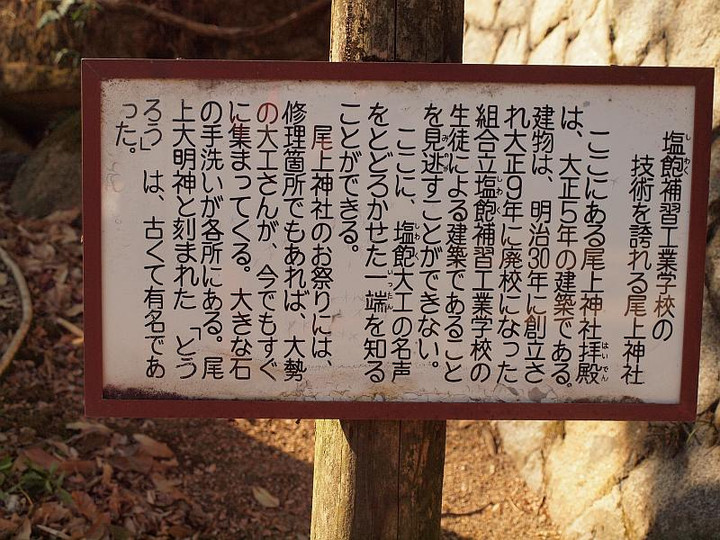 塩飽補習工業学校の
技術を誇れる尾上神社
ここにある尾上神社拝殿
は、大正5年の建築である。
建物は、明治30年に創立さ
れ大正9年に廃校になった
組合立塩飽補習工業学校の
生徒による建築であること
を見逃すことができない。
ここに、塩飽大工の名声
をとどろかせた一端を知る
ことができる。
尾上神社のお祭りには、
修理箇所でもあれば、大勢
の大工さんが、今でもすぐ
に集まってくる。大きな石
の手洗いが各所にある。尾
上大明神と刻まれた「とう
ろう」は、古くて有名であ
った。